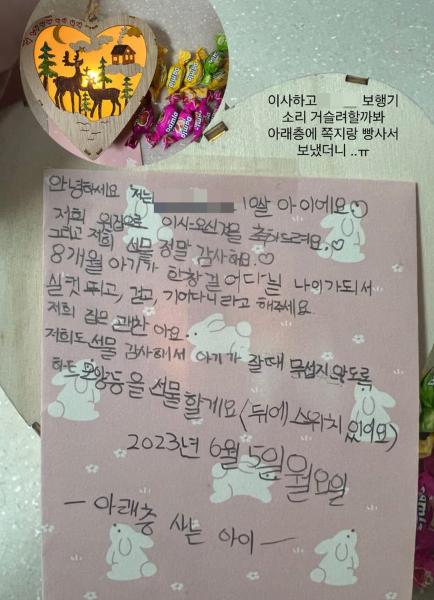 이사하고 보행기
소리 거슬려할까봐
아래층에 쪽지랑 빵사서
보냈더니 ..ㅠ
안녕하세요 저는 10살 아이에요
저희 윗집으로 이사 오신걸 축하드려요♡
그리고 저희 선물 정말 감사해요♡
8개월 아기가 한창 걸어다닐 나이가 되서
실컷 뛰고, 걷고, 기어다니라고 해주세요.
저희 집은 괜찮아요
저희도 선물 감사해서 아기가 잘때 무섭지 않도록
하트모양등을 선물할게요(뒤에 스위치 있어요)
2023년 6월 5일 월요일
- 아래층 사는 아이 -